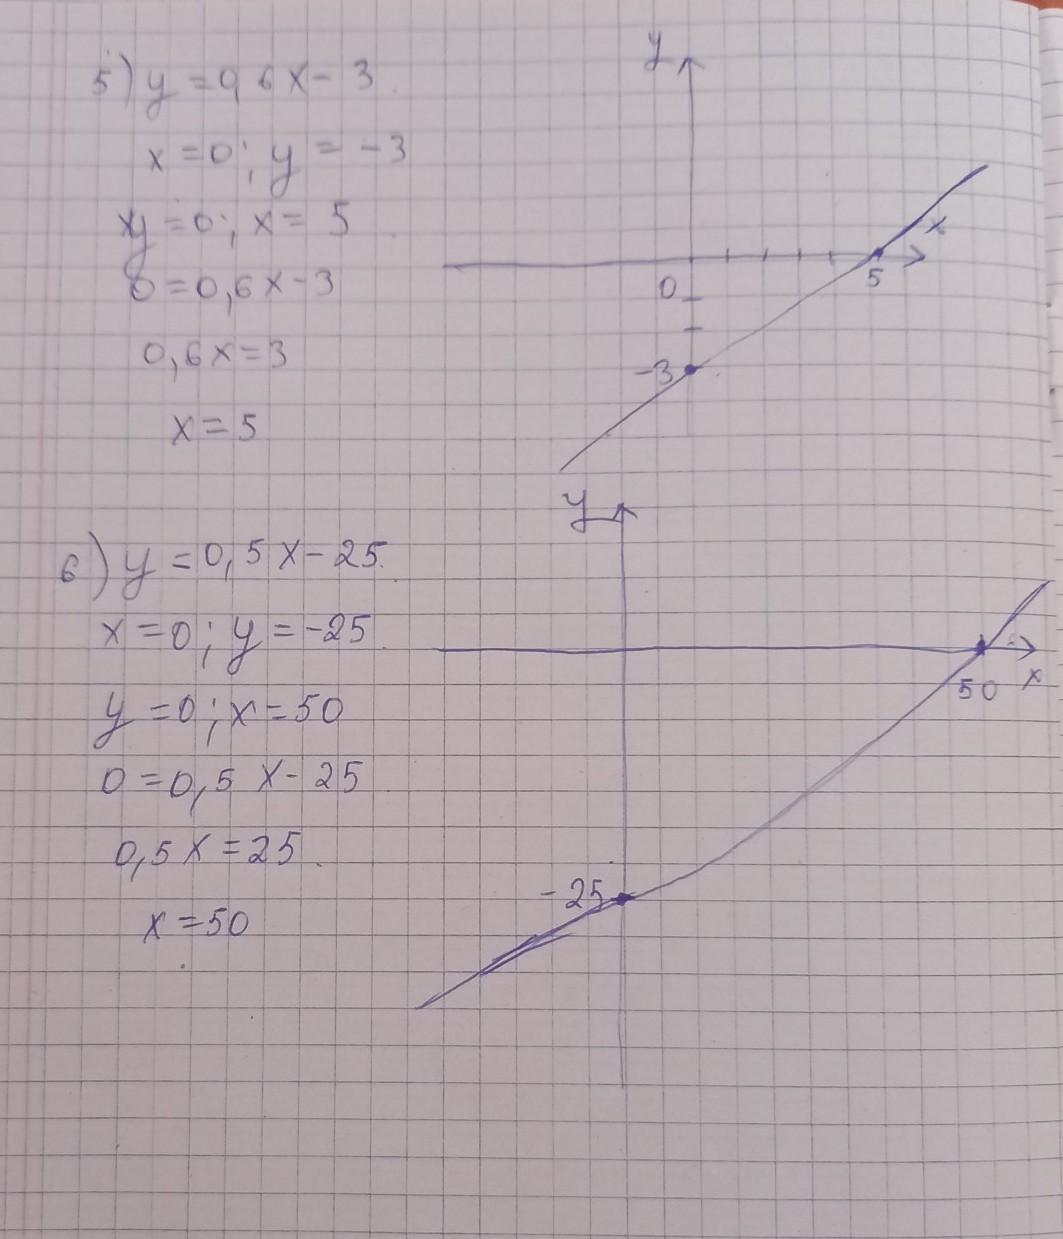 5) y = 0,6x - 3
x = 0; y = -3
y = 0; x = 5
0 = 0,6x - 3
0,6x = 3
x = 5
y
x
0
5
-3
6) y = 0,5x - 25.
x = 0; y = -25
y = 0; x = 50
0 = 0,5x - 25
0,5x = 25.
x = 50
y
50
x
-25